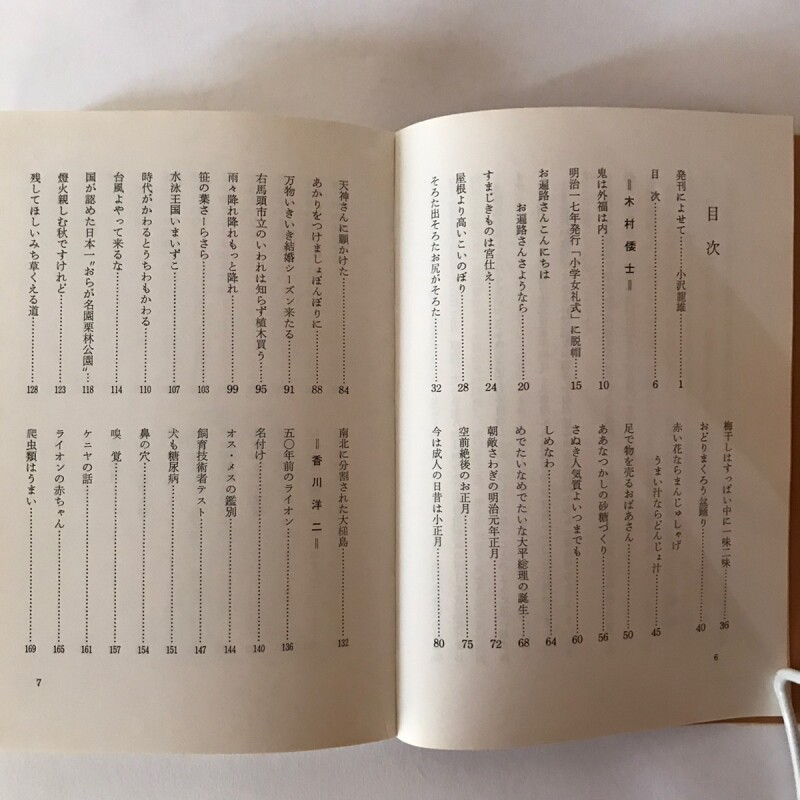 目次
発刊によせて……小沢龍雄……1
目次……6
＝木村倭士＝
鬼は外福は内……10
明治一七年発行「小学女礼式」に脱帽……15
お遍路さんこんにちは
お遍路さんさようなら……20
すまじきものは宮仕え……24
屋根より高いこいのぼり……28
そろた出そろたお尻がそろた……32
梅干しはすっぱい中に一味二味……36
おどりまくろう盆踊り……40
赤い花ならまんじゅしゃげ
うまい汁ならどんじょ汁……45
足で物を売るおばあさん……50
ああなつかしの砂糖づくり……56
さぬき人気質よいつまでも……60
しめなわ……64
めでたいなめでたいな大平総理の誕生……68
朝敵さわぎの明治元年正月……72
空前絶後のお正月……75
今は成人の日昔は小正月……80
6
天神さんに願かけた……84
あかりをつけましょぼんぼりに……88
万物いきいき結婚シーズン来たる……91
右馬頭市立のいわれは知らず植木買う……95
雨々降れ降れもっと降れ……99
笹の葉さーらさら……103
水泳王国いまいずこ……107
時代がかわるとうちわもかわる……110
台風よやって来るな……114
国が認めた日本一〝おらが名園栗林公園〟……118
燈火親しむ秋ですけれど……123
残してほしいみち草くえる道……128
南北に分割された大槌島……132
＝香川洋二＝
五〇年前のライオン……136
名付け……140
オス・メスの鑑別……144
飼育技術者テスト……147
犬も糖尿病……151
鼻の穴……154
嗅覚……157
ケニヤの話……161
ライオンの赤ちゃん……165
爬虫類はうまい……169
7